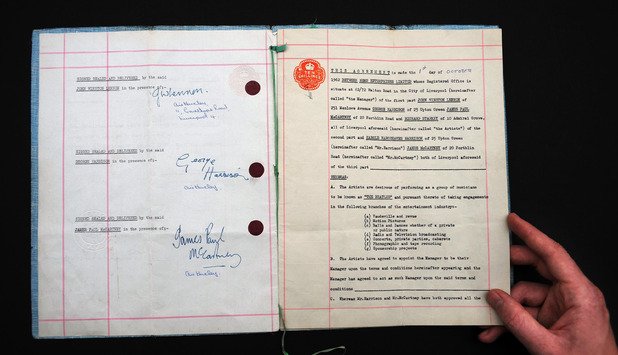 SIGNED SEALED AND DELIVERED by the said
JOHN WINSTON LENNON in the presence of:-
J W Lennon.
Liverpool 4.
SIGNED SEALED AND DELIVERED by the said
GEORGE HARRISON in the presence of:-
George
Harrison
SIGNED SEALED AND DELIVERED by the said
JAMES PAUL McCARTNEY in the presence of:-
James Paul
McCartney
THIS AGREEMENT is made the 1st day of OCTOBER
1962 BETWEEN NEMS ENTERPRISES LIMITED whose Registered Office is
situate at 62/72 Walton Road in the City of Liverpool (hereinafter
called "the Manager") of the first part JOHN WINSTON LENNON of
251 Menlove Avenue GEORGE HARRISON of 25 Upton Green JAMES PAUL
McCARTNEY of 20 Forthlin Road and RICHARD STARKEY of 10 Admiral Grove,
all of Liverpool aforesaid (hereinafter called "the Artists") of the
second part and HAROLD HARGREAVES HARRISON of 25 Upton Green
(hereinafter called "Mr.Harrison") JAMES McCARTNEY of 20 Forthlin
Road (hereinafter called "Mr.McCartney") both of Liverpool aforesaid
of the third part
WHEREAS:
A. The Artists are desirous of performing as a group of musicians
to be known as "THE BEATLES" and pursuant thereto of taking engagements
in the following branches of the entertainment industry:-
(a) Vaudeville and revue
(b) Motion Pictures
(c) Balls and dances whether of a private
or public nature
(d) Radio and Television broadcasting
(e) Concerts, private parties, cabarets
(f) Phonographic and tape recording
(g) Sponsorship projects
B. The Artists have agreed to appoint the Manager to be their
Manager upon the terms and conditions hereinafter appearing and the
Manager has agreed to act as such Manager upon the said terms and
conditions
C. Whereas Mr.Harrison and Mr.McCartney have both approved all the